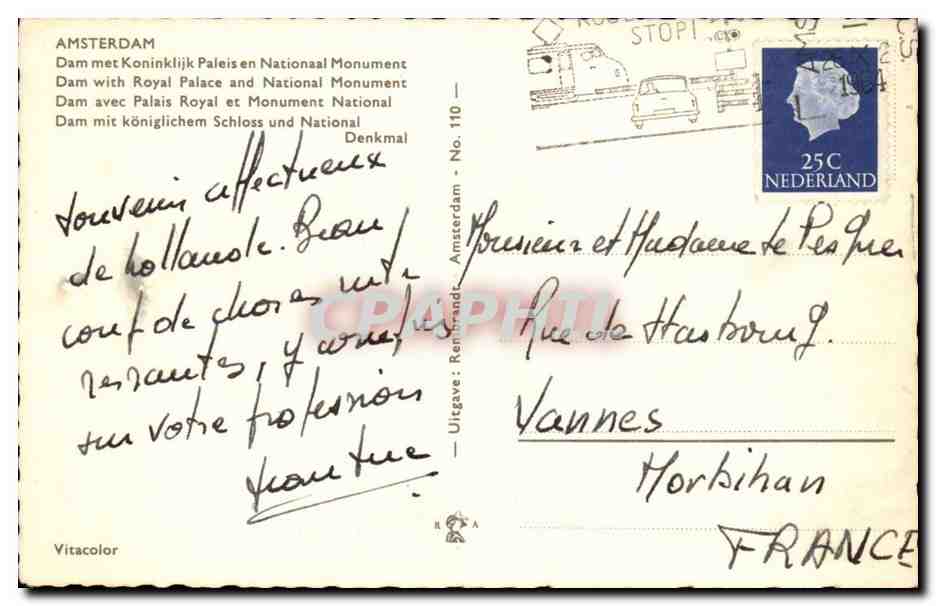 AMSTERDAM
Dam met Koninklijk Paleis en Nationaal Monument
Dam with Royal Palace and National Monument
Dam avec Palais Royal et Monument National
Dam mit königlichem Schloss und National
Denkmal
souvenir affectueux
de hollande. Beau
coup de choses inté
ressantes, y compris
sur votre profession
Vitacolor
— Uitgave: Rembrandt - Amsterdam - No. 110 —
R A
STOP!
1964
25 C
NEDERLAND
Monsieur et Madame Le Pesquer
Rue de Strasbourg.
Vannes
Morbihan
FRANCE
CPAPHIL